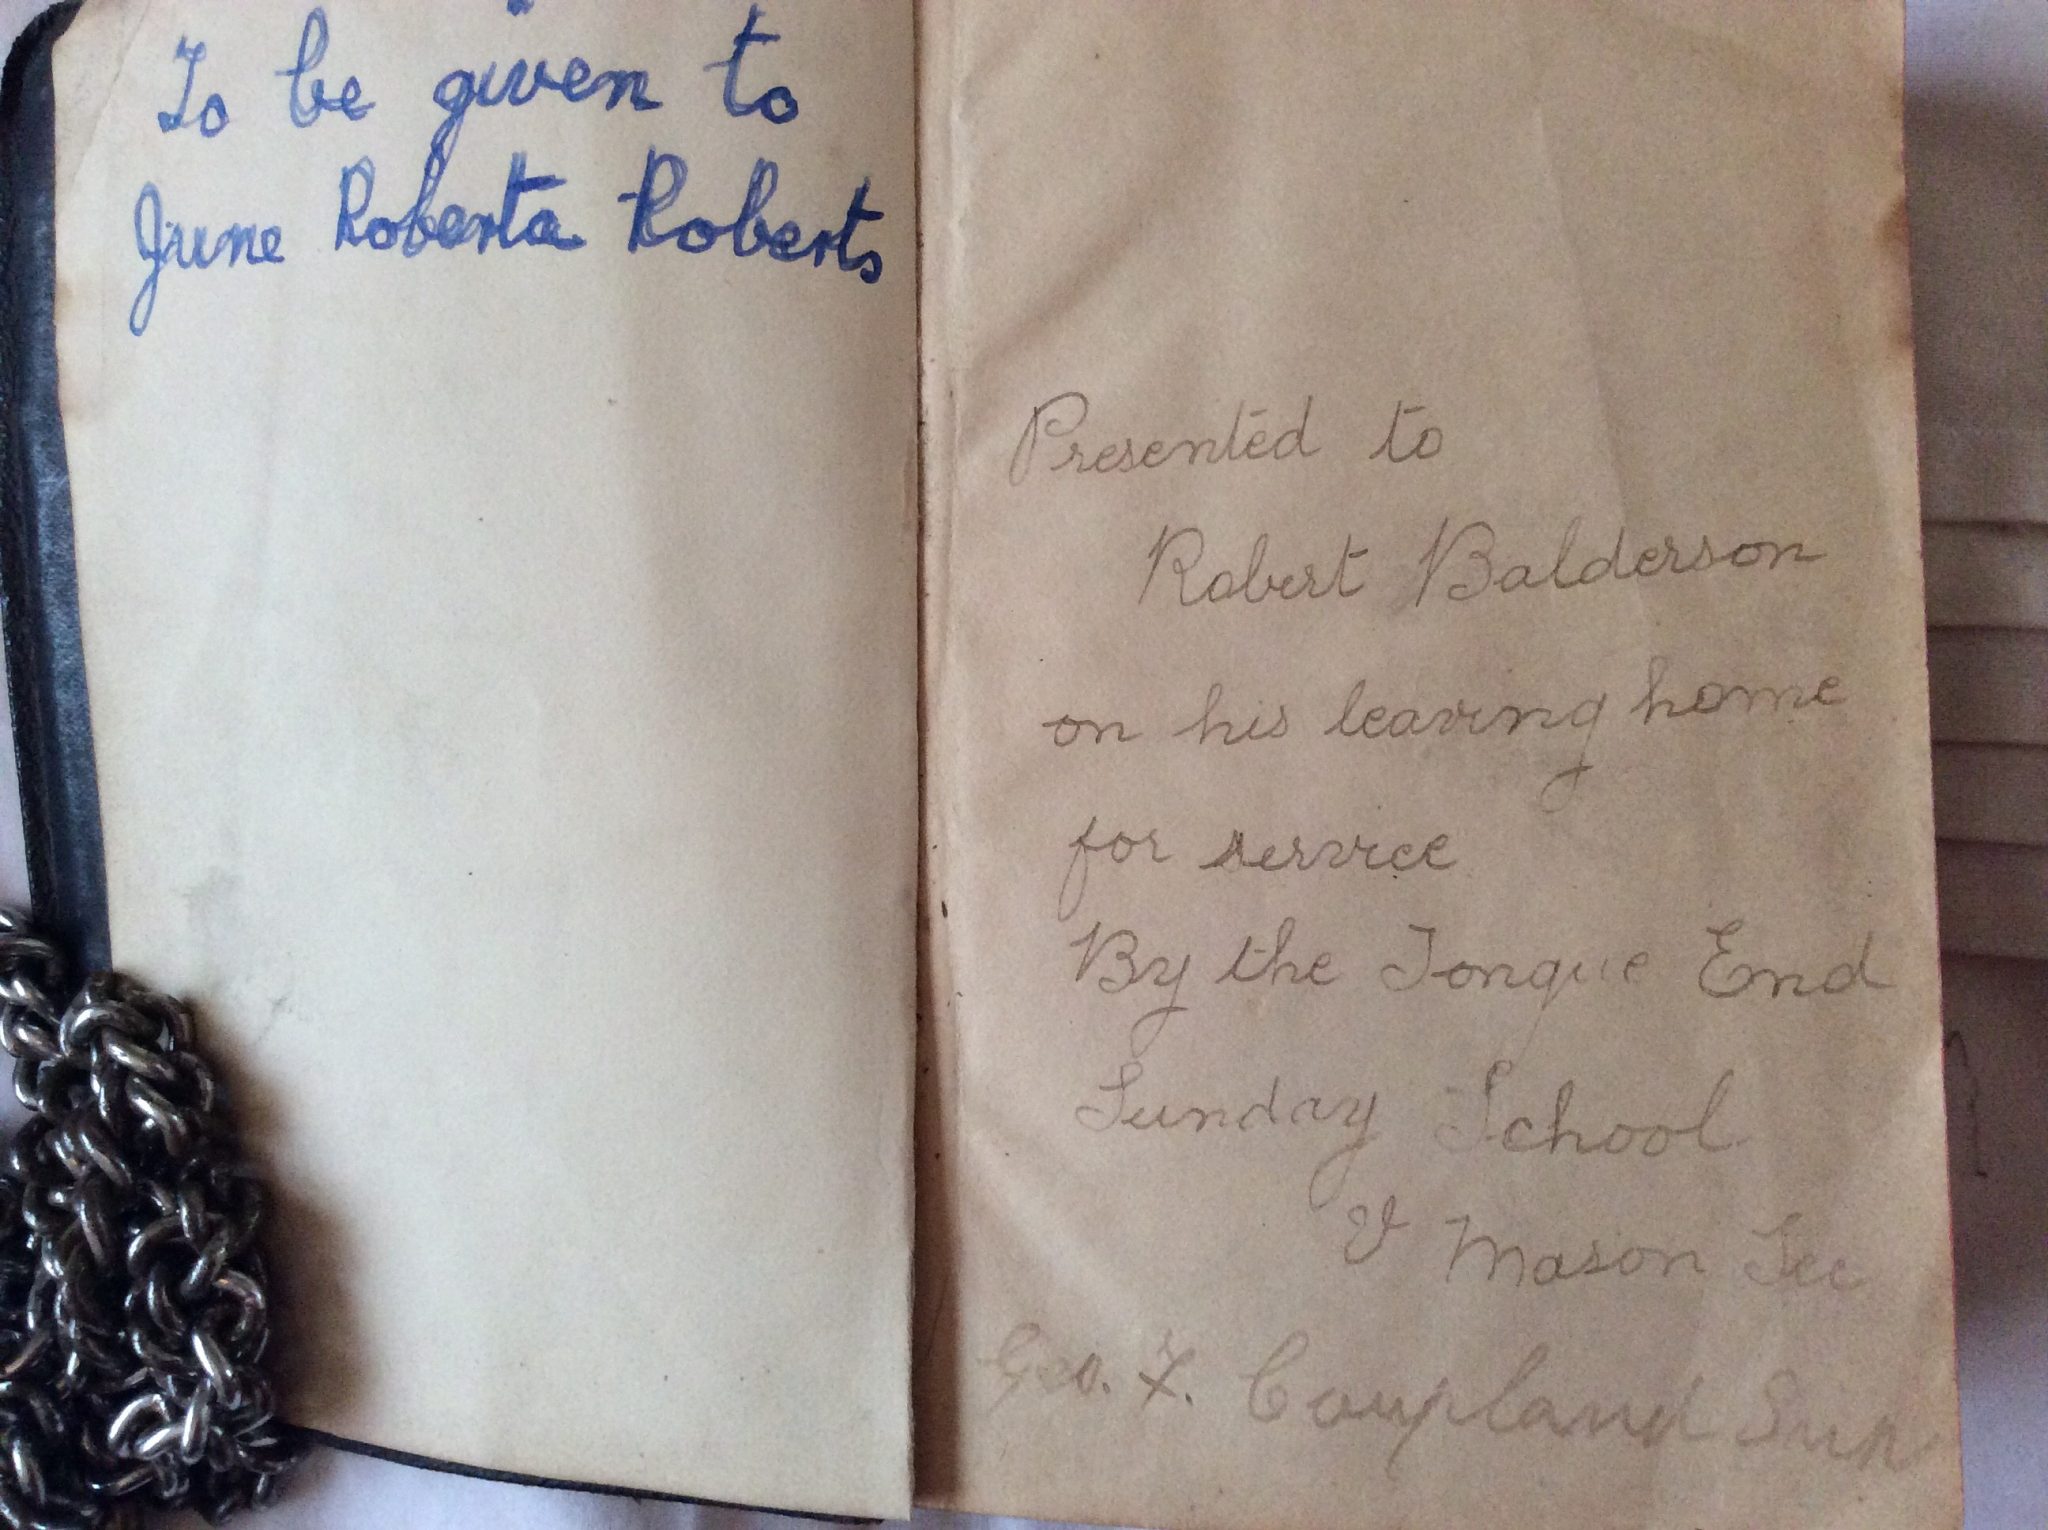 To be given to
June Roberta Roberts
Presented to
Robert Balderson
on his leaving home
for service
By the Tongue End
Sunday School
V Mason Sec
Geo. F. Coupland Sup